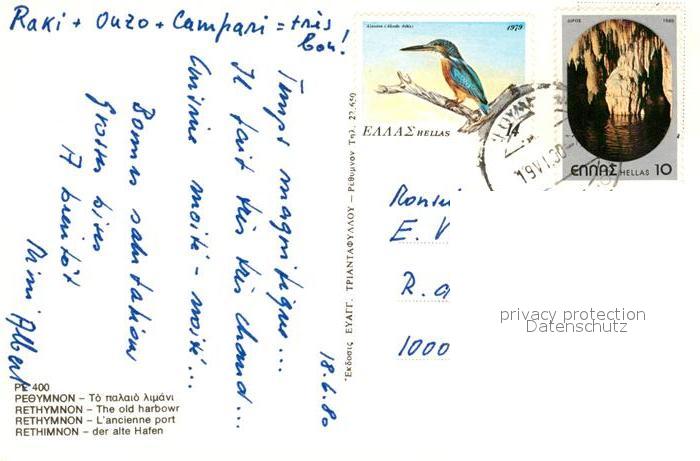 Raki + Ouzo + Campari = très
bon!
18.6.80
Temps magnifique...
Il fait très très chaud...
Cuisine moité - moité...
Bonnes salutations
Grosses bises
A bientôt
Mimi Albert
PE 400
ΡΕΘΥΜΝΟΝ – Τὸ παλαιὸ λιμάνι
RETHYMNON – The old harbowr
RETHYMNON – L'ancienne port
RETHIMNON – der alte Hafen
Ἔκδοσις ΕΥΑΓΓ. ΤΡΙΑΝΤΑΦΥΛΛΟΥ – Ρέθυμνον Τηλ. 22.650
1979
ΕΛΛΑΣ HELLAS 14
ΔΙΡΟΣ 1980
ΕΛΛΑΣ HELLAS 10
19 VI 80
E. V
R.
1000
privacy protection
Datenschutz